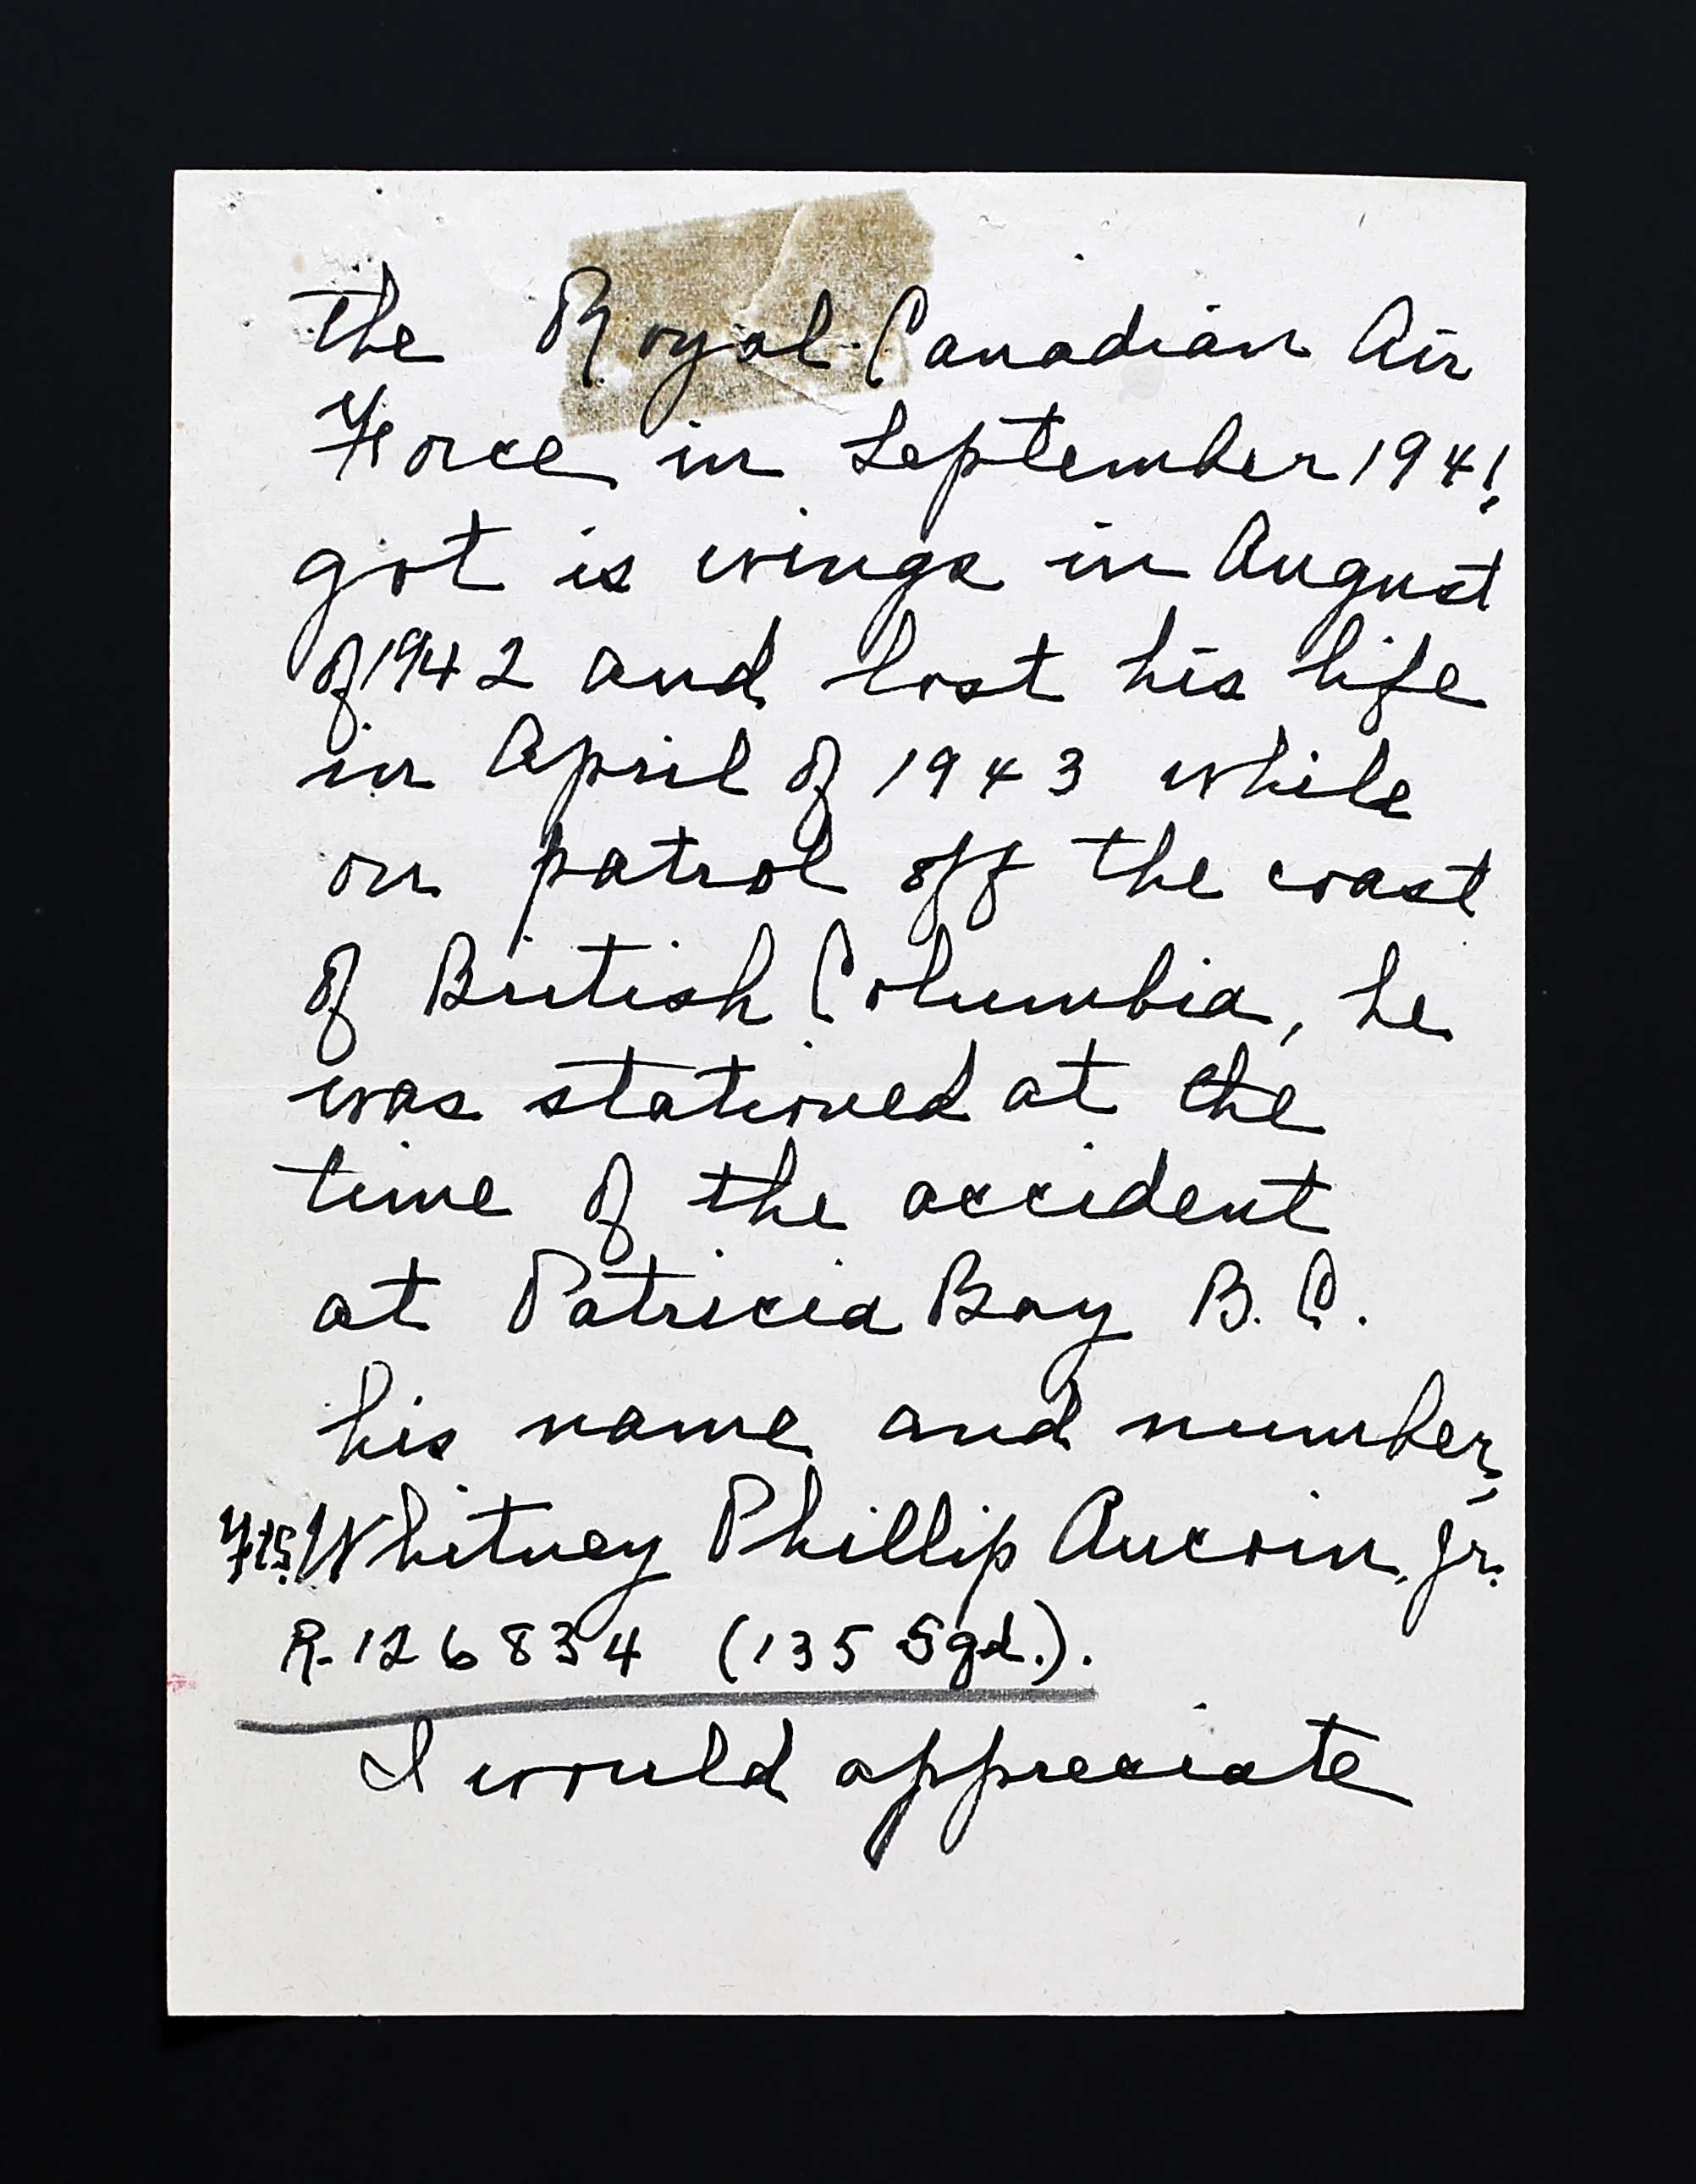 the Royal Canadian Air
Force in September 1941,
got is wings in August
of 1942 and lost his life
in April of 1943 while
on patrol off the coast
of British Columbia, he
was stationed at the
time of the accident
at Patricia Bay B.C.
his name and number,
F/S. Whitney Phillip Aucoin, Jr.
R-126834 (135 Sqd.).
I would appreciate